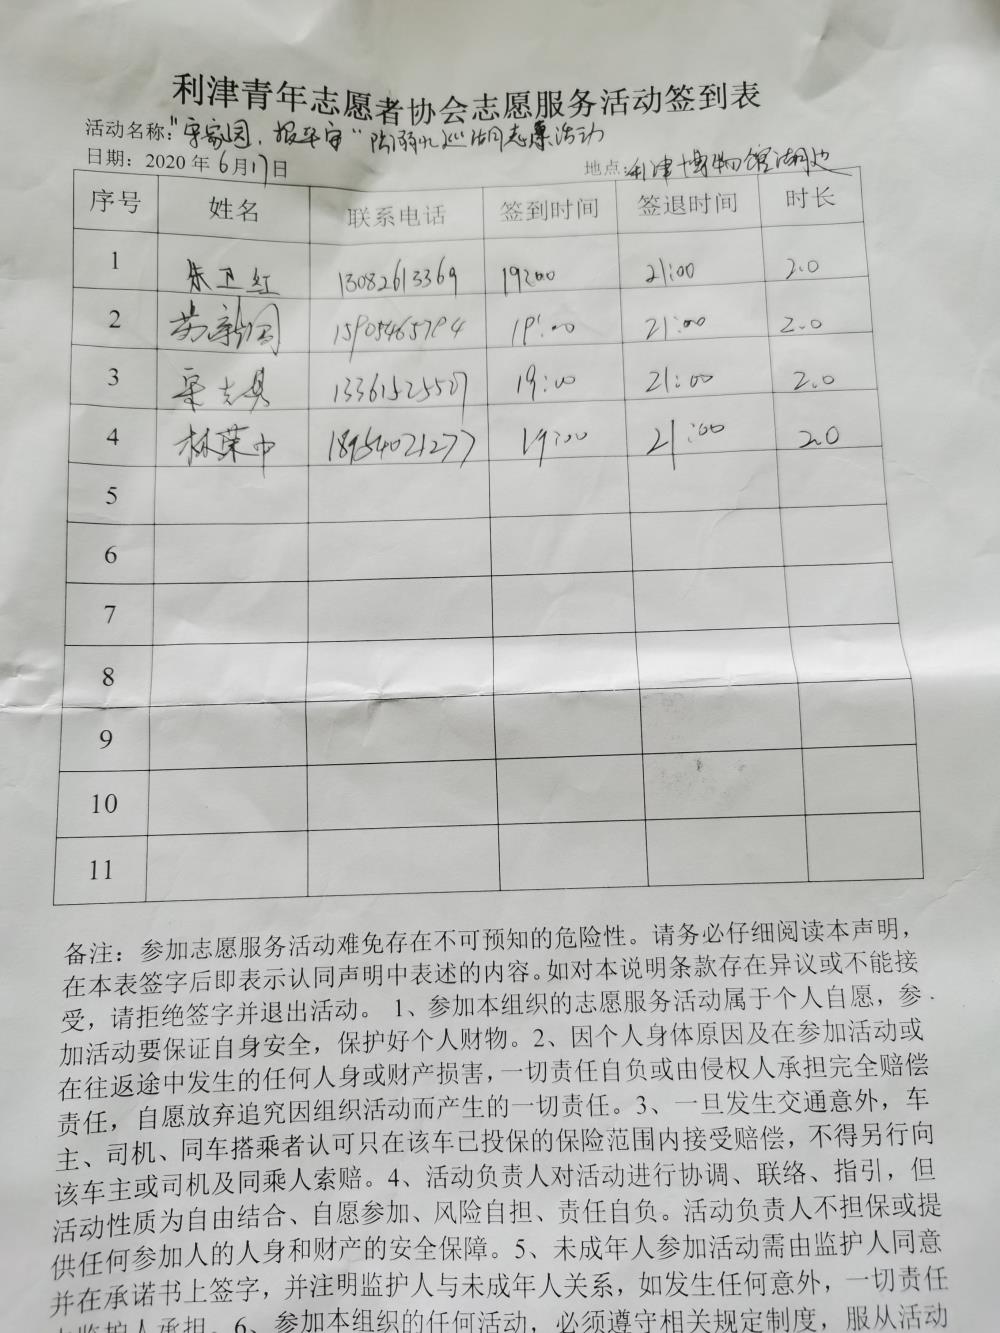 利津青年志愿者协会志愿服务活动签到表
活动名称:"守家园、报平安"防溺水巡湖志愿活动
日期: 2020年6月17日 地点:利津博物馆湖边
序号 姓名 联系电话 签到时间 签退时间 时长
1 朱卫红 13082613369 19:00 21:00 2.0
2 15905465794 19:00 21:00 2.0
3 13361525507 19:00 21:00 2.0
4 林荣中 18954021277 19:00 21:00 2.0
5
6
7
8
9
10
11
备注：参加志愿服务活动难免存在不可预知的危险性。请务必仔细阅读本声明，
在本表签字后即表示认同声明中表述的内容。如对本说明条款存在异议或不能接
受，请拒绝签字并退出活动。 1、参加本组织的志愿服务活动属于个人自愿，参
加活动要保证自身安全，保护好个人财物。2、因个人身体原因及在参加活动或
在往返途中发生的任何人身或财产损害，一切责任自负或由侵权人承担完全赔偿
责任，自愿放弃追究因组织活动而产生的一切责任。3、一旦发生交通意外，车
主、司机、同车搭乘者认可只在该车已投保的保险范围内接受赔偿，不得另行向
该车主或司机及同乘人索赔。4、活动负责人对活动进行协调、联络、指引，但
活动性质为自由结合、自愿参加、风险自担、责任自负。活动负责人不担保或提
供任何参加人的人身和财产的安全保障。5、未成年人参加活动需由监护人同意
并在承诺书上签字，并注明监护人与未成年人关系，如发生任何意外，一切责任
由监护人承担。6、参加本组织的任何活动，必须遵守相关规定制度，服从活动